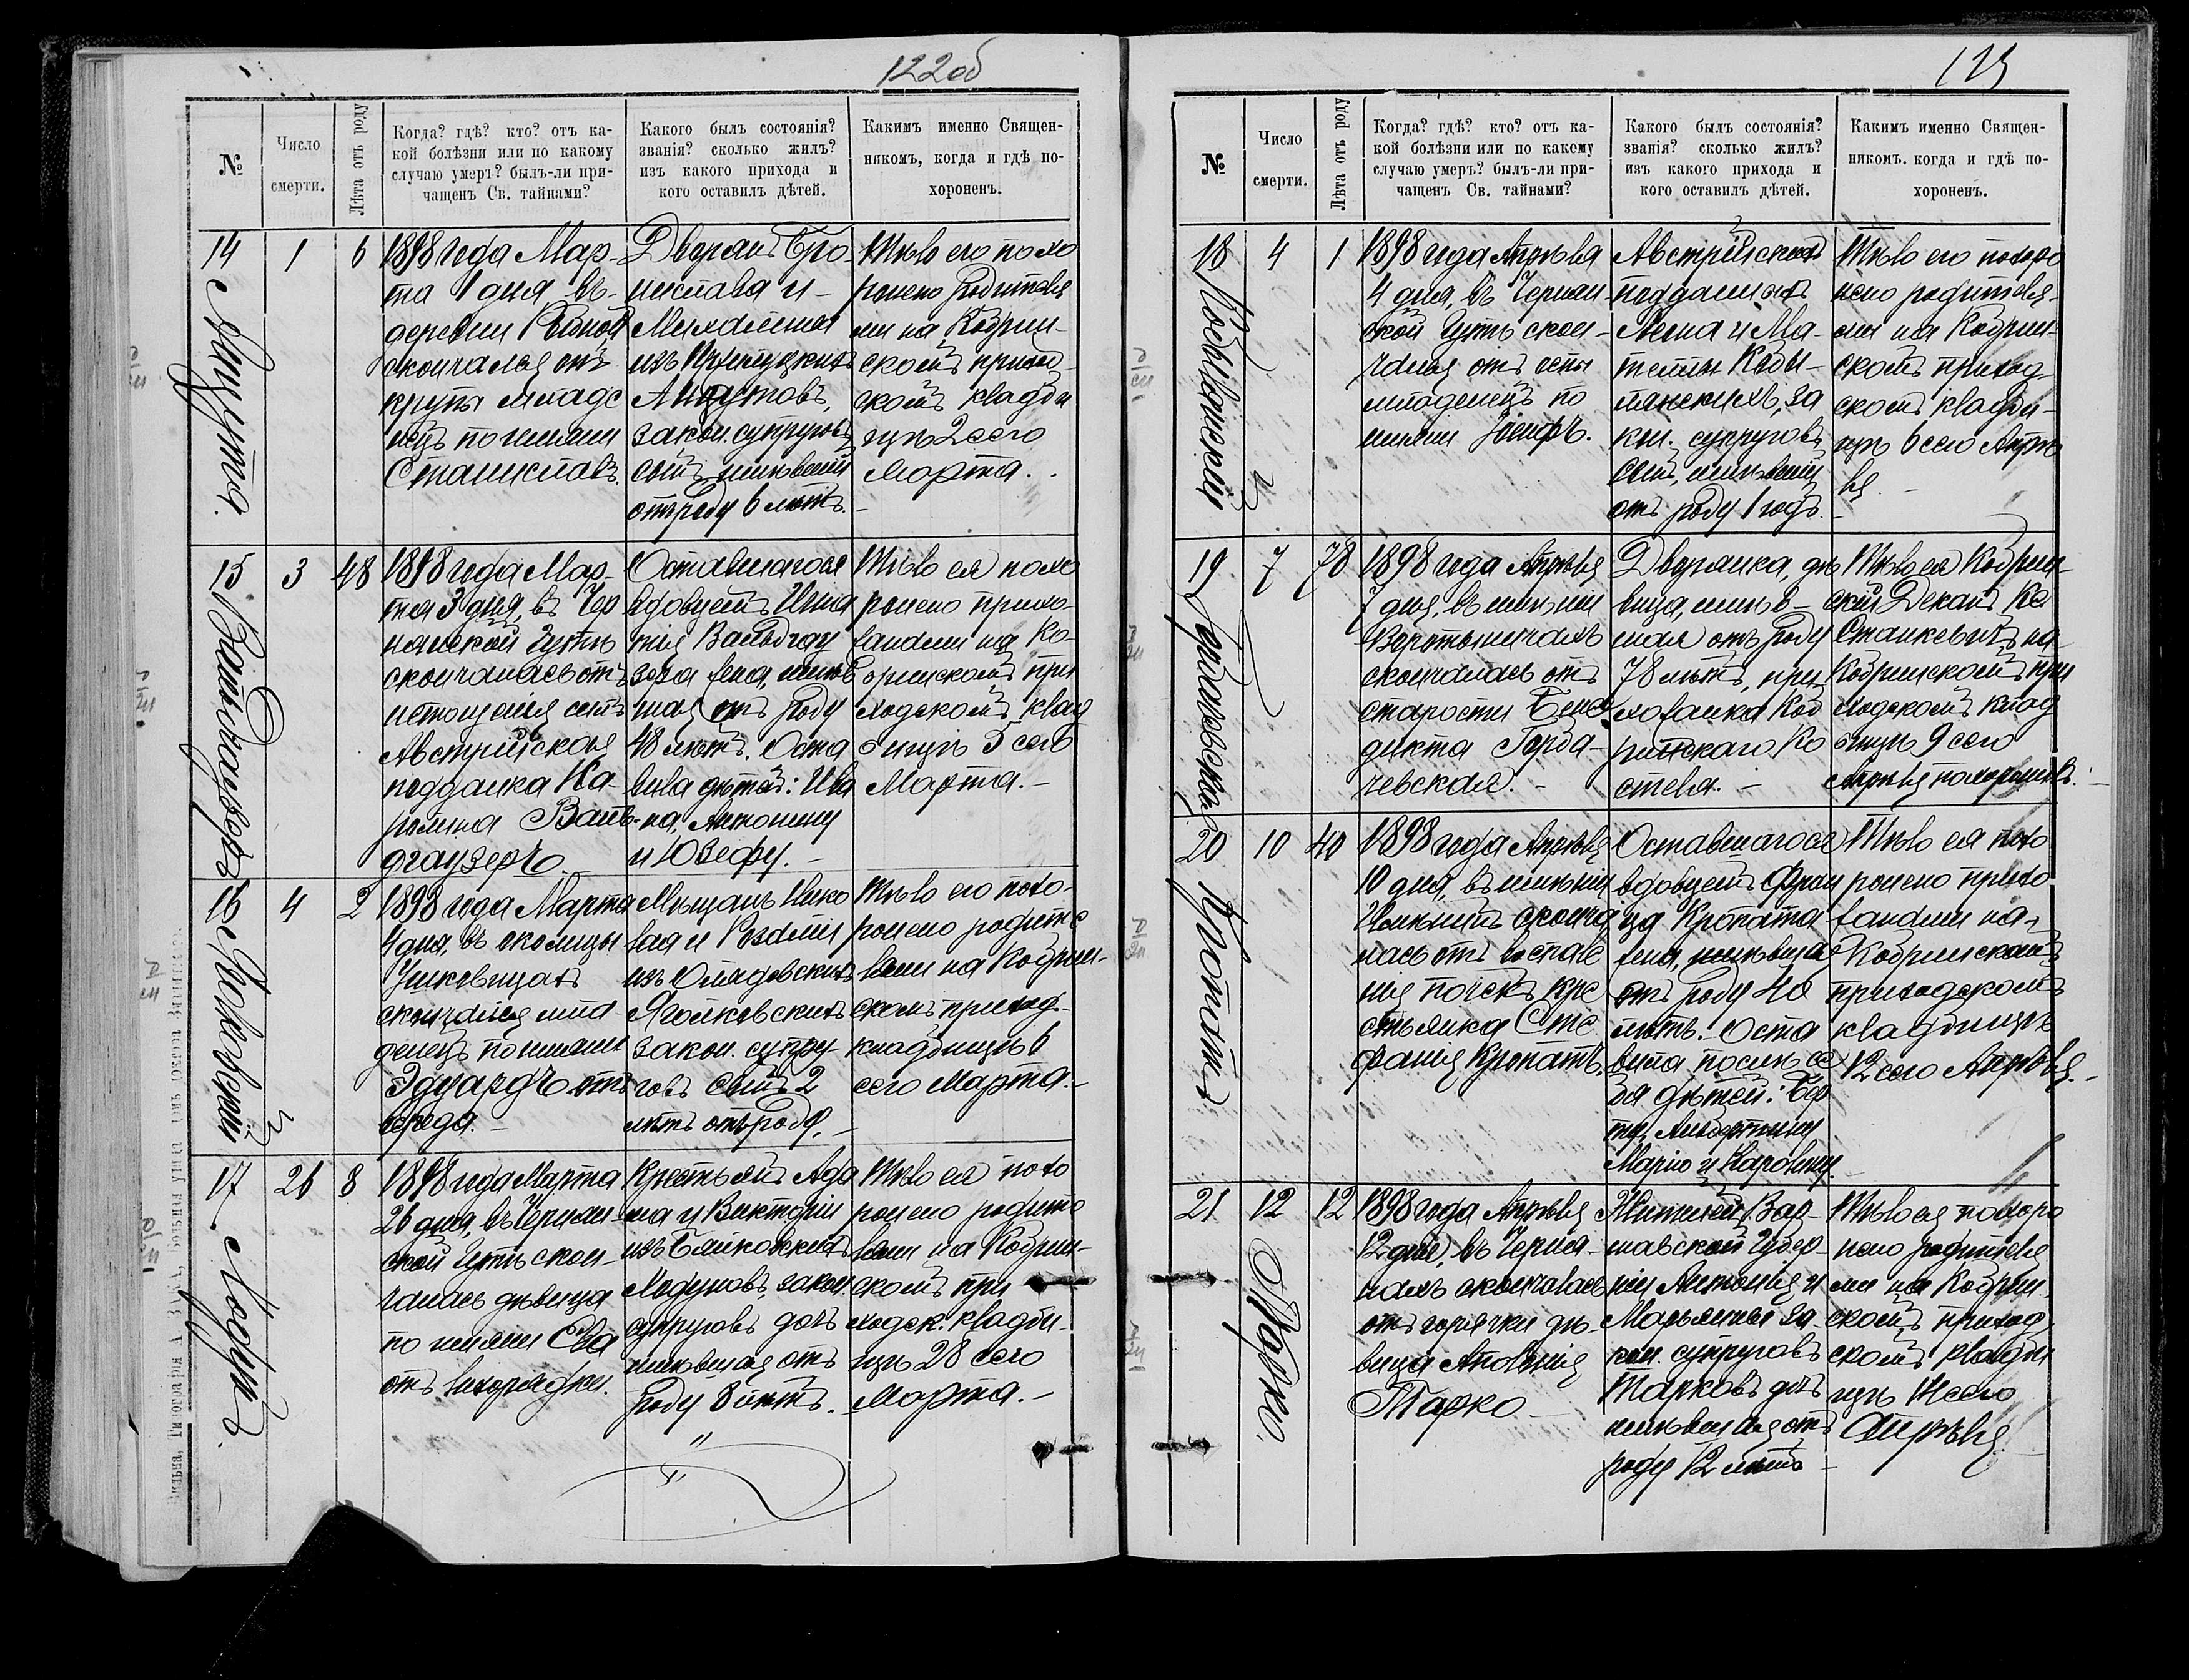 122об
№
Число
смерти.
Лѣта отъ роду
Когда? гдѣ? кто? отъ ка-
кой болѣзни или по какому
случаю умеръ? былъ-ли при-
чащенъ Св. тайнами?
Какого былъ состоянія?
званія? сколько жилъ?
изъ какого прихода и
кого оставилъ дѣтей.
Какимъ именно Священ-
никомъ, когда и гдѣ по-
хороненъ.
14
1
6
1898 года Мар-
та 1 дня въ
деревни
скончался отъ
крупы младе
нецъ по имени
Станиславъ.
Дворянъ Бро-
нислава и
изъ
закон. супруговъ
сынъ, имѣвшій
отъ роду 6 лѣтъ.
Тѣло его похо
ронено родителя
ми на Кобрин-
скомъ приход
скомъ кладби
щѣ 2 сего
Марта.
15
3
48
1898 года Мар-
та 3 дня, въ Чер
нянской Гутѣ
скончалась отъ
истощенія силъ
Австрійская
подданка Ка-
ролина Валь-
дгаузеръ
Оставшагося
вдовцемъ Игна
тія Вальдгау
зера жена, имѣв
шая отъ роду
48 лѣтъ. Оста
вила дѣтей: Ива
на, Антонину
и Юзефу.
Тѣло ея похо
ронено прихо-
жанами на Ко-
бринскомъ при
ходскомъ клад
бищѣ 5 сего
Марта.
Вальдгаузеръ
16
4
2
1898 года Марта
4 дня, въ околицы
скончался мла
денецъ по имени
Эдуардъ отъ
вереда.
Мѣщанъ Нико
лая и Розаліи
изъ
закон. супру-
говъ сынъ 2
лѣтъ отъ роду.
Тѣло его похо-
ронено родите
лями на Кобрин-
скомъ приход.
кладбищѣ 6
сего Марта.
17
26
8
1898 года Марта
26 дня, въ Чернян-
ской Гутѣ скон-
чалась дѣвица
по имени Ева
отъ лихорадки.
Крестьянъ Ада
ма и Викторіи
изъ
закон.
супруговъ дочь
имѣвшая отъ
роду 8 лѣтъ.
Тѣло ея похо
ронено родите
лями на Кобрин-
скомъ при
ходск. кладби-
щѣ 28 сего
Марта.
№
Число
смерти.
Лѣта отъ роду
Когда? гдѣ? кто? отъ ка-
кой болѣзни или по какому
случаю умеръ? былъ-ли при-
чащенъ Св. тайнами?
Какого былъ состоянія?
званія? сколько жилъ?
изъ какого прихода и
кого оставилъ дѣтей.
Какимъ именно Священ-
никомъ. когда и гдѣ по-
хороненъ.
18
4
1
1898 года Апрѣля
4 дня, въ Чернян-
ской Гутѣ скон-
чался отъ оспы
младенецъ по
имени Іосифъ.
Австрійскихъ
подданныхъ
за
кон. супруговъ
сынъ, имѣвшій
отъ роду 1 годъ.
Тѣло его похоро
нено родителя-
ми на Кобрин-
скомъ приход-
скомъ кладби-
щѣ 6 сего Апрѣ
ля.
19
7
78
1898 года Апрѣля
7 дня, въ имѣніи
скончалась отъ
старости Бене
дикта Горба-
чевская.
Дворянка, дѣ
вица, имѣв-
шая отъ роду
78 лѣтъ, при
хожанка Коб
ринскаго Ко
стела.
Тѣло ея Кобрин-
скій Деканъ Кс.
Станкевичъ на
Кобринскомъ при
ходскомъ клад
бищѣ 9 сего
Апрѣля похоронилъ.
Горбачевская
20
10
40
1898 года Апрѣля
10 дня, въ имѣніи
сконча
лась отъ воспале
нія почекъ кре
стьянка Сте
фанія Кропатъ.
Оставшагося
вдовцемъ Фран
ца Кропата
жена, имѣвшая
отъ роду 40
лѣтъ. Оста
вила послѣ се
бя дѣтей: Бер
ту, Альбертину
Марію и Каролину.
Тѣло ея похо
ронено прихо
жанами на
Кобринскомъ
приходскомъ
кладбищѣ
12 сего Апрѣля.
Кропатъ
21
12
12
1898 года Апрѣля
12 дня, въ Черня-
нахъ скончалась
отъ горячки дѣ-
вица Аполонія
Тарко
Жителей Вар-
шавской Губер-
ніи Антонія и
Марьянны за-
кон. супруговъ
Тарковъ дочь
имѣвшая отъ
роду 12 лѣтъ
Тѣло ея похоро
нено родителя
ми на Кобрин
скомъ приход
скомъ кладби
щѣ 14 сего
Апрѣля.
Тарко.